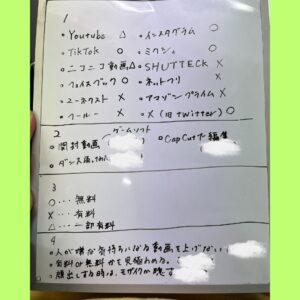 1
・Youtube △ ・インスタグラム ○
・TikTok ○ ・ミクシィ ○
・ニコニコ動画△ ・SHUTTECK X
・フェイスブック○ ・ネットフリ X
・ユーネクスト X ・アマゾンプライム X
・フールー X ・X(旧twitter)○
2 ゲームソフト
・開封動画( ・CapCutで編集
・ダンス
3
○…無料
X…有料
△…一部有料
4
・人が嫌な気持ちになる動画を上げない
・有料か無料かを見極める。
・顔出しする時は、モザイクか隠す